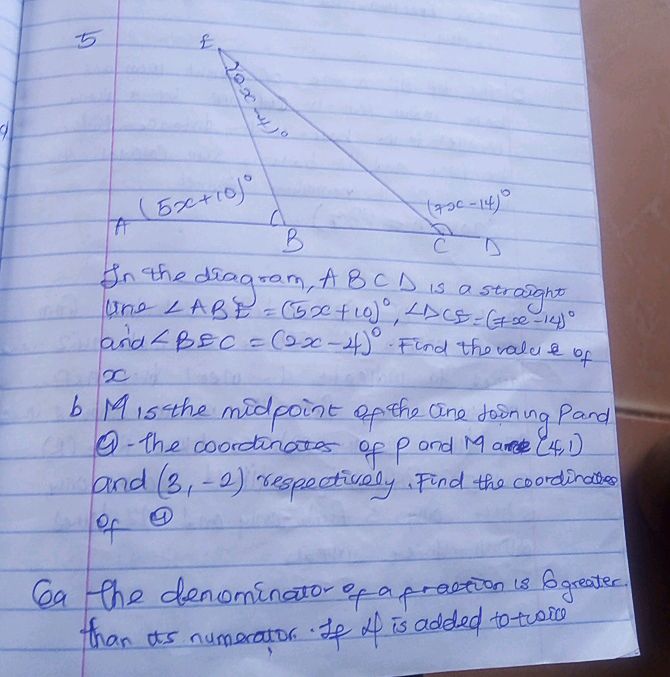 5
E
(2x-4)°
(5x+10)°
(7x-14)°
A
B
C
D
In the diagram, A B C D is a straight
line ∠ABE = (5x+10)°, ∠DCE=(7x-14)°
and ∠BEC = (2x-4)°. Find the value of
x
b M is the midpoint of the line joining P and
Q. the coordinates of P and M are (4,1)
and (3, -2) respectively. Find the coordinates
of Q
6a the denominator of a fraction is 6 greater
than its numerator. If 4 is added to twice